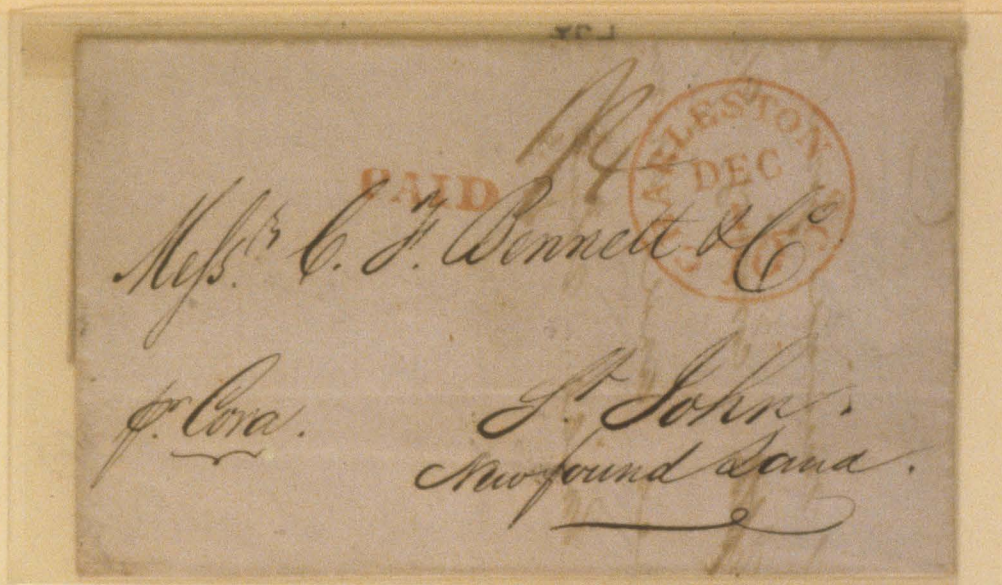 PAID
CHARLESTON S.C.
DEC
10
Messrs. C. F. Bennett & Co
pr. Cora.
St. John.
Newfound Land.